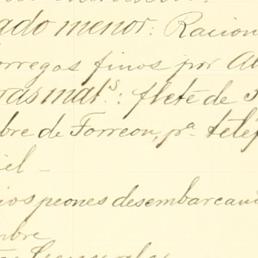 ado menor: Racion
orregos finos por Al
ras mat.s: flete de
bre de Torreon, pa. telé
iel_
ios peones desembarcand
mbre